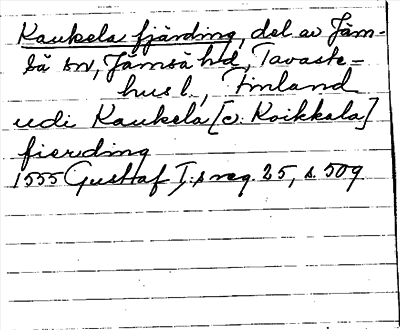 Kaukela fjärding, del av Jäm-
sä sn, Jämsä hd, Tavaste-
hus l., Finland
udi Kaukela [o: Koikkala]
fierding
1555 Gustaf I:s reg. 25, s. 509